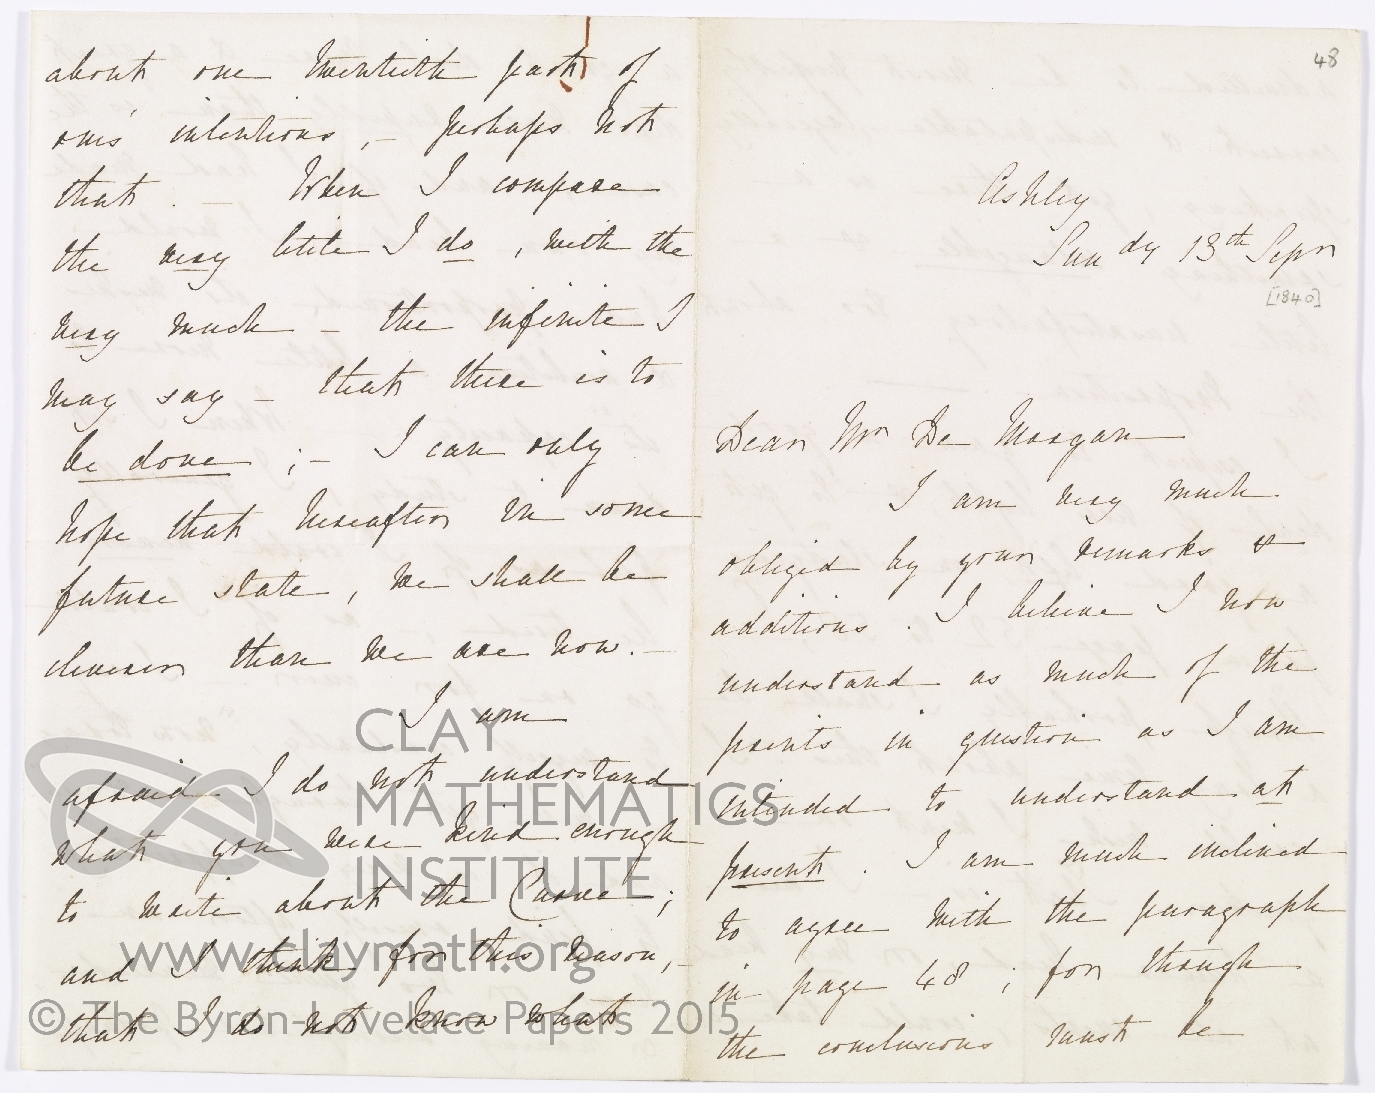 about one twentieth part of
one's intentions, — perhaps not
that. — When I compare
the very little I do, with the
very much — the infinite I
may say — that there is to
be done; — I can only
hope that hereafter in some
future state, we shall be
cleverer than we are now. —
I am
afraid I do not understand
what you were kind enough
to write about the Curve;
and I think for this reason, —
that I do not know what
48
Ashley
Sundy 13th Sepr
[1840]
Dear Mr De Morgan
I am very much
obliged by your remarks &
additions. I believe I now
understand as much of the
points in question as I am
intended to understand at
present. I am much inclined
to agree with the paragraph
in page 48; for though
the conclusions must be
CLAY
MATHEMATICS
INSTITUTE
www.claymath.org
© The Byron-Lovelace Papers 2015